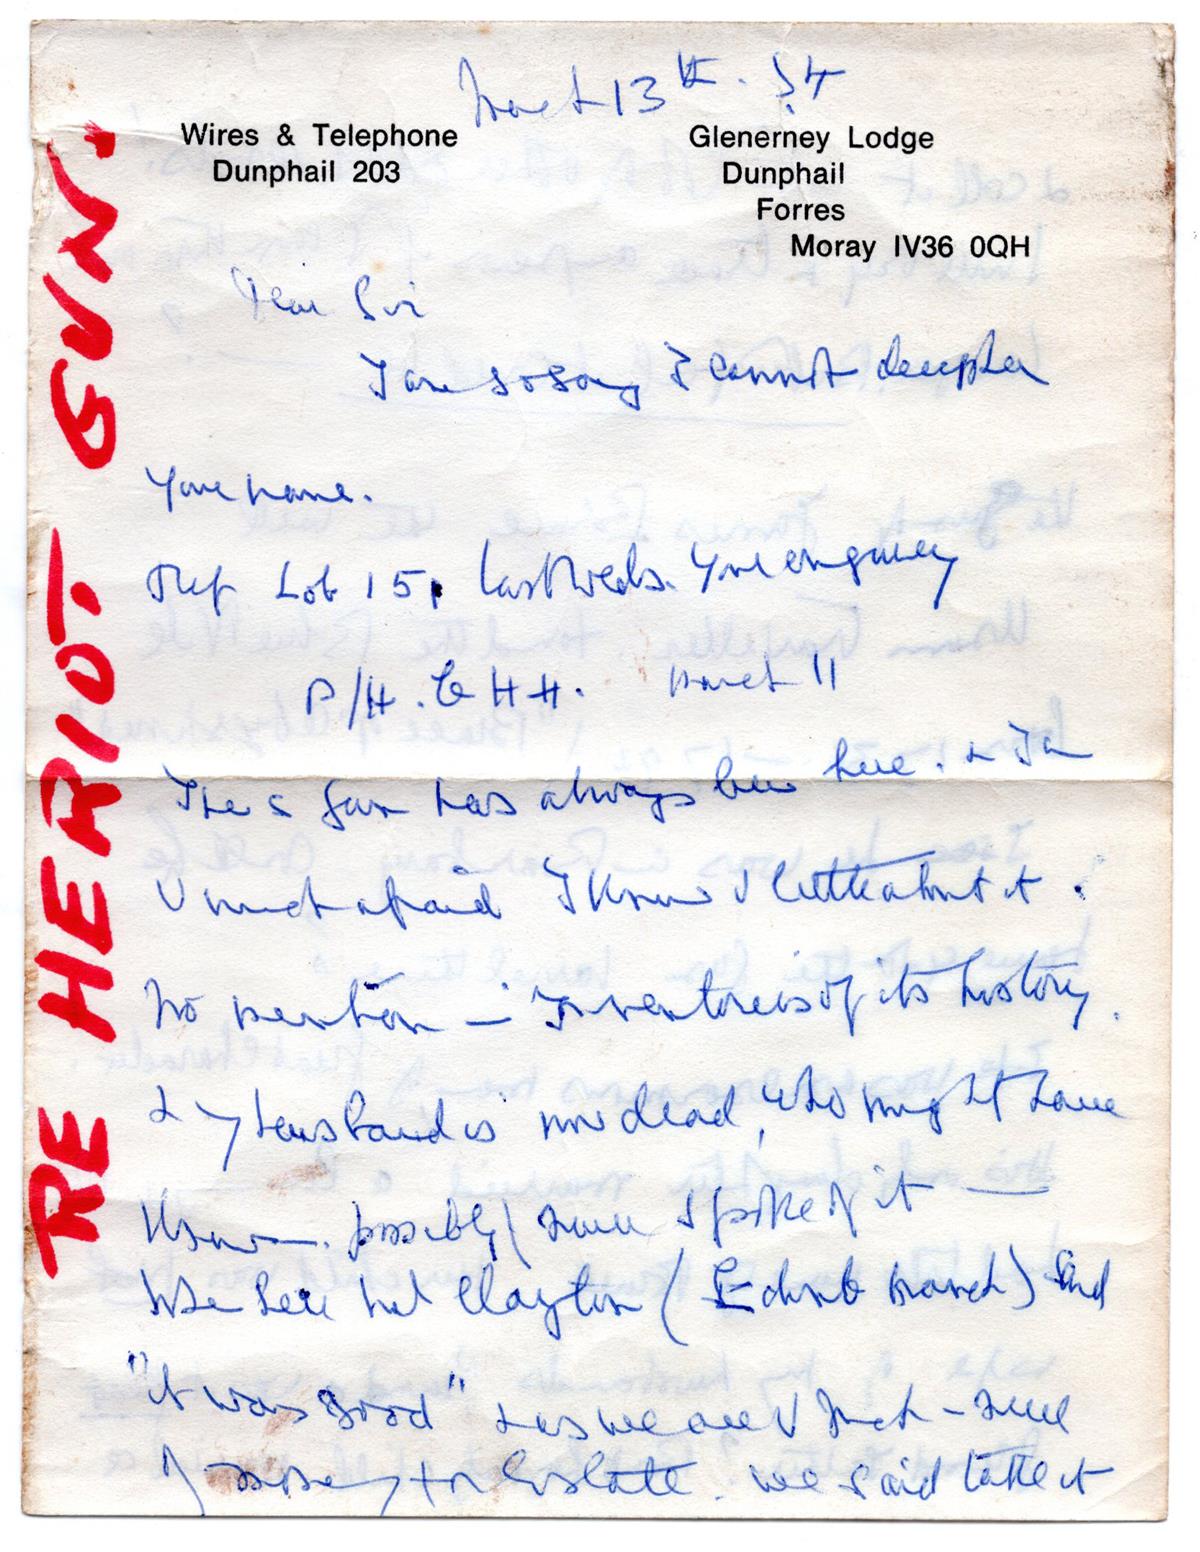 March 13th. 84
Wires & Telephone
Dunphail 203
Glenerney Lodge
Dunphail
Forres
Moray IV36 0QH
RE HERIOT GUN.
Dear Sir
I am so sorry I cannot decipher
Your name.
Ref Lot 151 last Weds. Your enquiry
P/H. March 11
The gun has always been here. & I am
V much afraid I know V little about it.
No mention — Inventories of its history.
& my husband is now dead, who might have
known. possibly never spoke of it —
We here Clayton ( Edinb branch) said
"it was good" & as we are V much – need
of money for Estate. we said take it